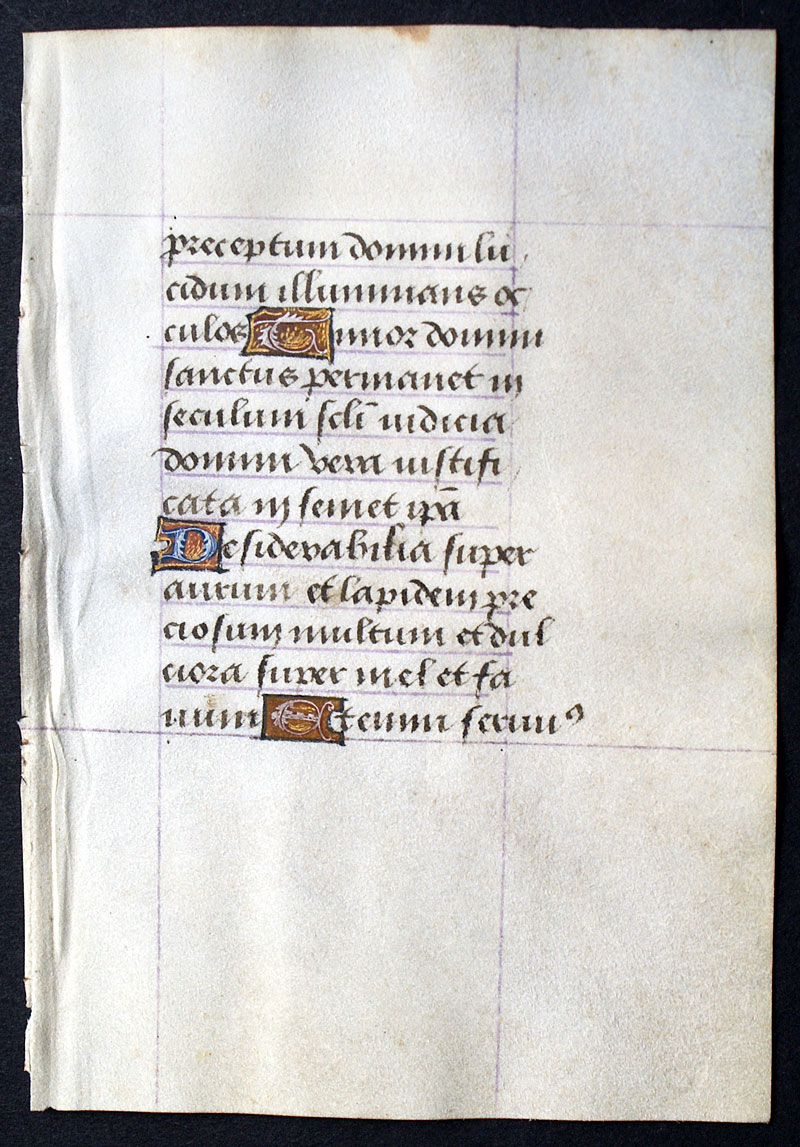 preceptum domini lu
cidum illuminans oc
culos Timor domini
sanctus permanet in
seculum scłi iudicia
domini vera iustifi
cata in semet ipā
Desiderabilia super
aurum et lapidem pre
ciosum multum et dul
ciora super mel et fa
uum Etenim seruuꝰ